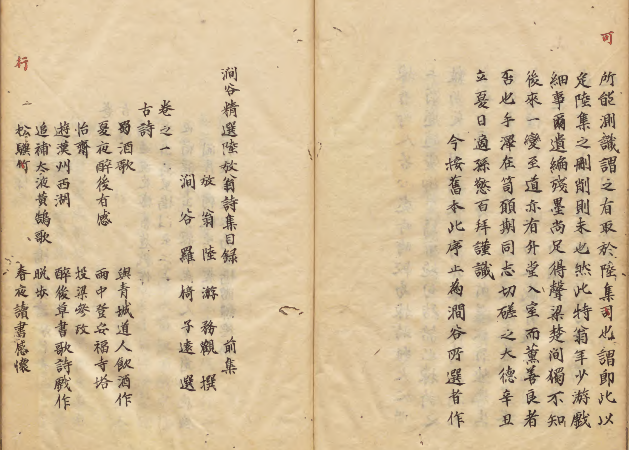 可
所能測識謂之有取於陸集可也謂即此以
定陸集之刪削則未也然此特翁年少游戲
細事爾遺編殘墨尚足得聲梁楚間獨不知
後來一變至道亦有升堂入室而薰善良者
否也手澤在笥願期同志切磋之大德辛丑
立夏日適孫憼百拜謹識
今按舊本此序止為澗谷所選者作
澗谷精選陸放翁詩集目錄 前集
放翁陸游務觀撰
澗谷羅椅子遠選
卷之一
古詩
蜀酒歌 與青城道人飲酒作
夏夜醉後有感 雨中登安福寺塔
怡齋 投梁參政
遊漢州西湖 醉後草書歌詩戲作
追補太液黃鵠歌 晚步
松驥行 春夜讀書感懷
行